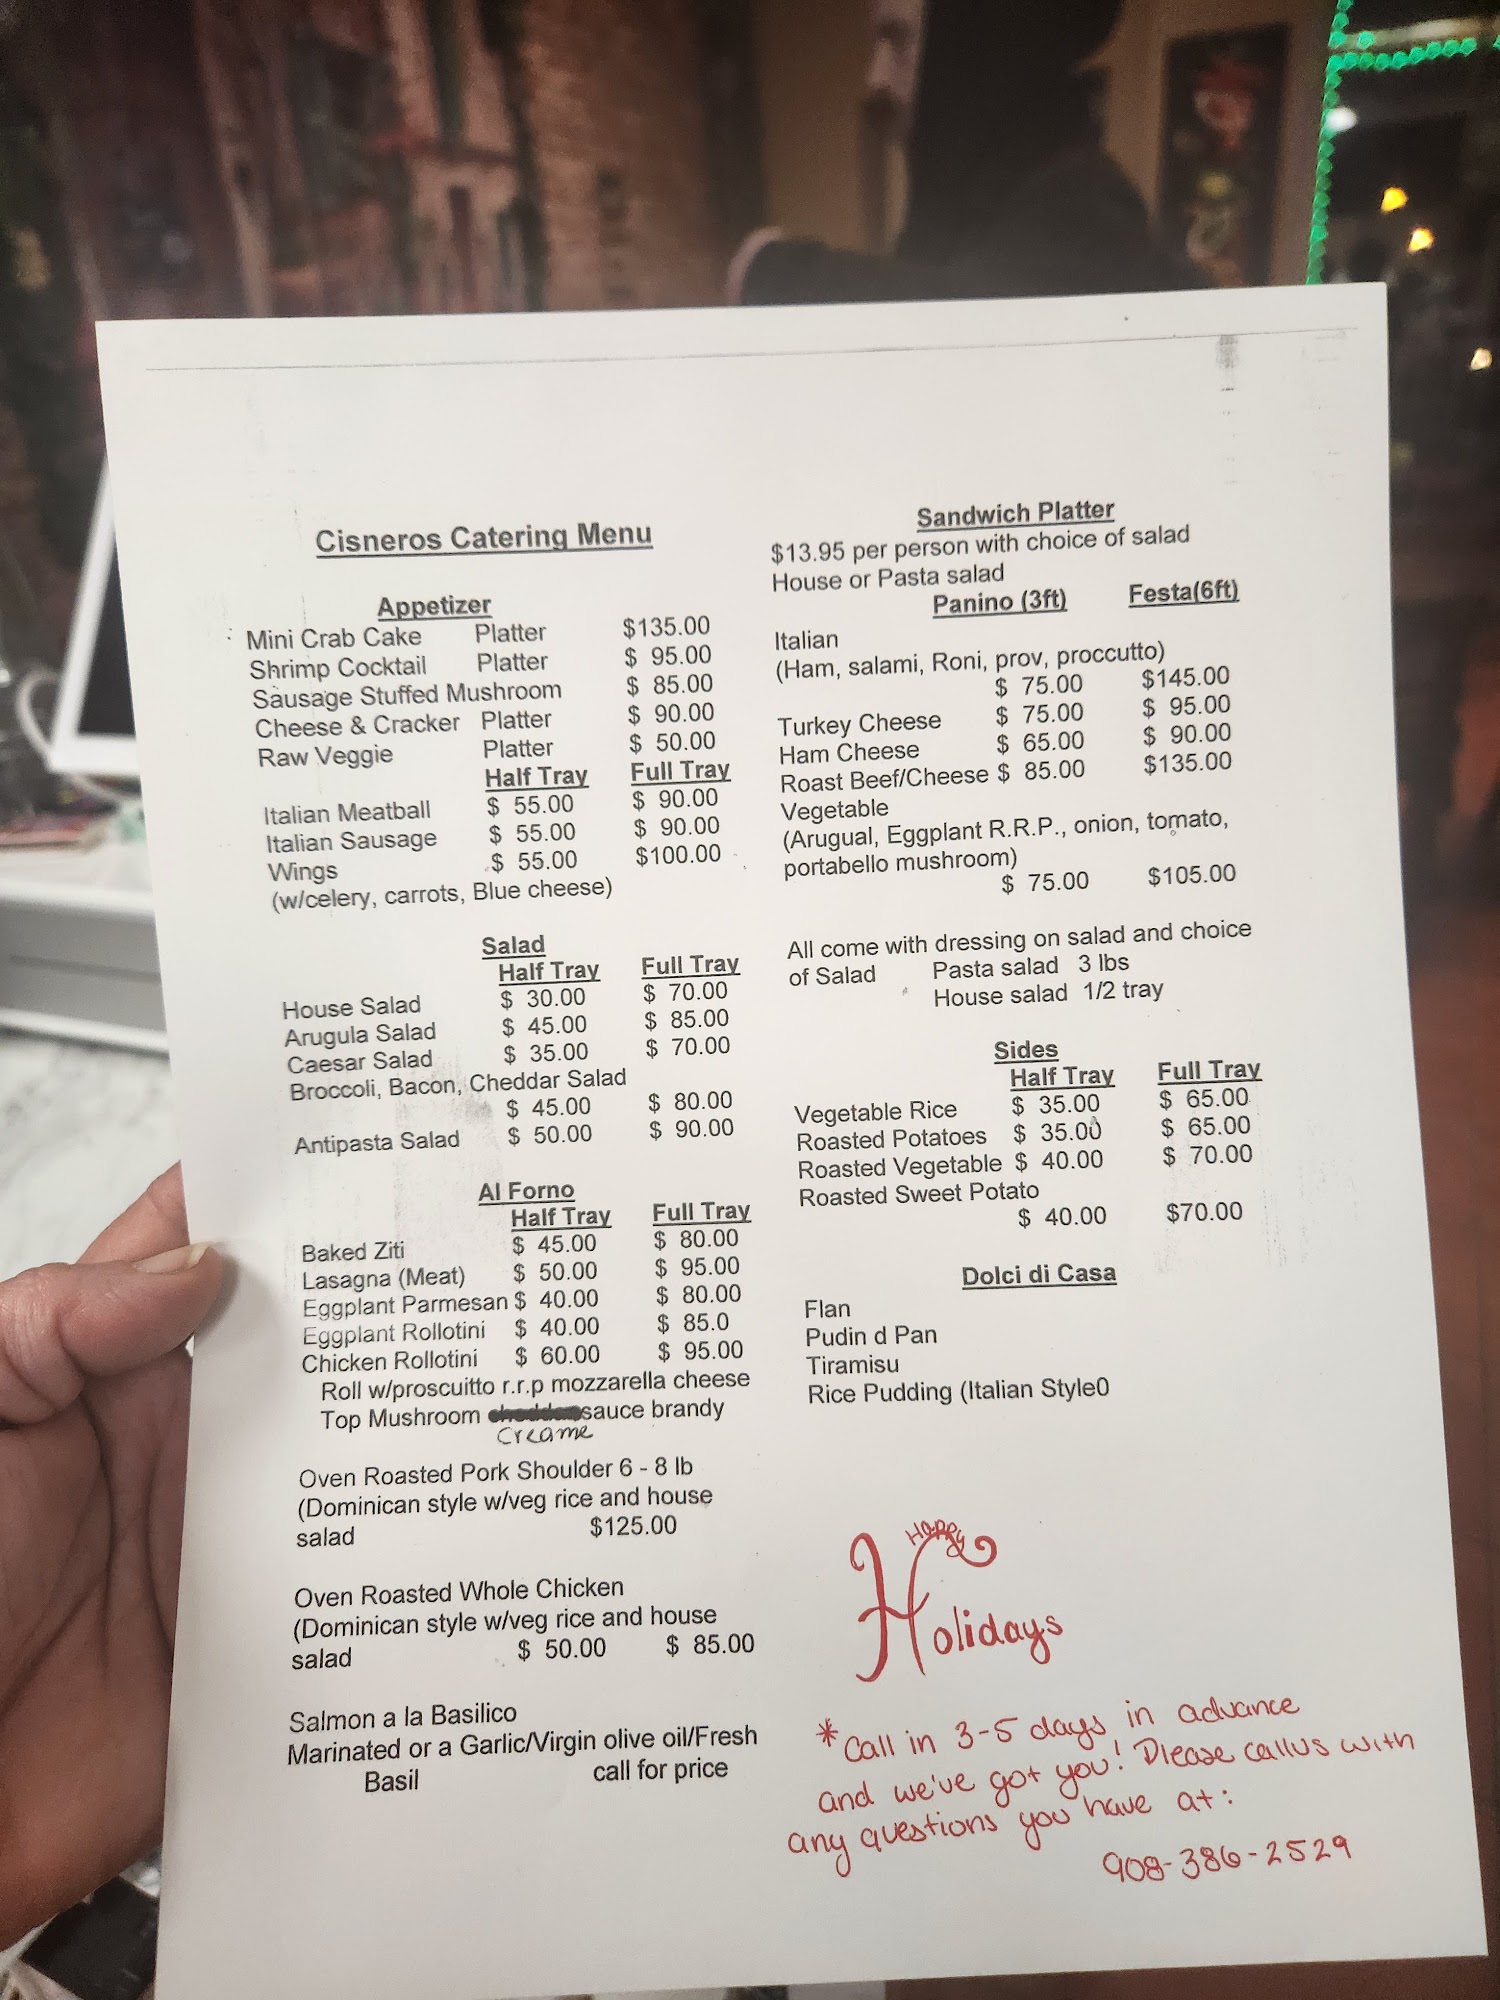 Cisneros Catering Menu
Appetizer
Mini Crab Cake Platter $135.00
Shrimp Cocktail Platter $ 95.00
Sausage Stuffed Mushroom $ 85.00
Cheese & Cracker Platter $ 90.00
Raw Veggie Platter $ 50.00
Half Tray Full Tray
Italian Meatball $ 55.00 $ 90.00
Italian Sausage $ 55.00 $ 90.00
Wings $ 55.00 $100.00
(w/celery, carrots, Blue cheese)
Salad
Half Tray Full Tray
House Salad $ 30.00 $ 70.00
Arugula Salad $ 45.00 $ 85.00
Caesar Salad $ 35.00 $ 70.00
Broccoli, Bacon, Cheddar Salad
$ 45.00 $ 80.00
Antipasta Salad $ 50.00 $ 90.00
Al Forno
Half Tray Full Tray
Baked Ziti $ 45.00 $ 80.00
Lasagna (Meat) $ 50.00 $ 95.00
Eggplant Parmesan $ 40.00 $ 80.00
Eggplant Rollotini $ 40.00 $ 85.0
Chicken Rollotini $ 60.00 $ 95.00
Roll w/proscuitto r.r.p mozzarella cheese
Top Mushroom sauce brandy
Creame
Oven Roasted Pork Shoulder 6 - 8 lb
(Dominican style w/veg rice and house
salad $125.00
Oven Roasted Whole Chicken
(Dominican style w/veg rice and house
salad $ 50.00 $ 85.00
Salmon a la Basilico
Marinated or a Garlic/Virgin olive oil/Fresh
Basil call for price
Sandwich Platter
$13.95 per person with choice of salad
House or Pasta salad
Panino (3ft) Festa(6ft)
Italian
(Ham, salami, Roni, prov, proccutto)
$ 75.00 $145.00
Turkey Cheese $ 75.00 $ 95.00
Ham Cheese $ 65.00 $ 90.00
Roast Beef/Cheese $ 85.00 $135.00
Vegetable
(Arugual, Eggplant R.R.P., onion, tomato,
portabello mushroom)
$ 75.00 $105.00
All come with dressing on salad and choice
of Salad Pasta salad 3 lbs
House salad 1/2 tray
Sides
Half Tray Full Tray
Vegetable Rice $ 35.00 $ 65.00
Roasted Potatoes $ 35.00 $ 65.00
Roasted Vegetable $ 40.00 $ 70.00
Roasted Sweet Potato
$ 40.00 $70.00
Dolci di Casa
Flan
Pudin d Pan
Tiramisu
Rice Pudding (Italian Style0
Happy
Holidays
*Call in 3-5 days in advance
and we've got you! Please call us with
any questions you have at:
908-386-2529